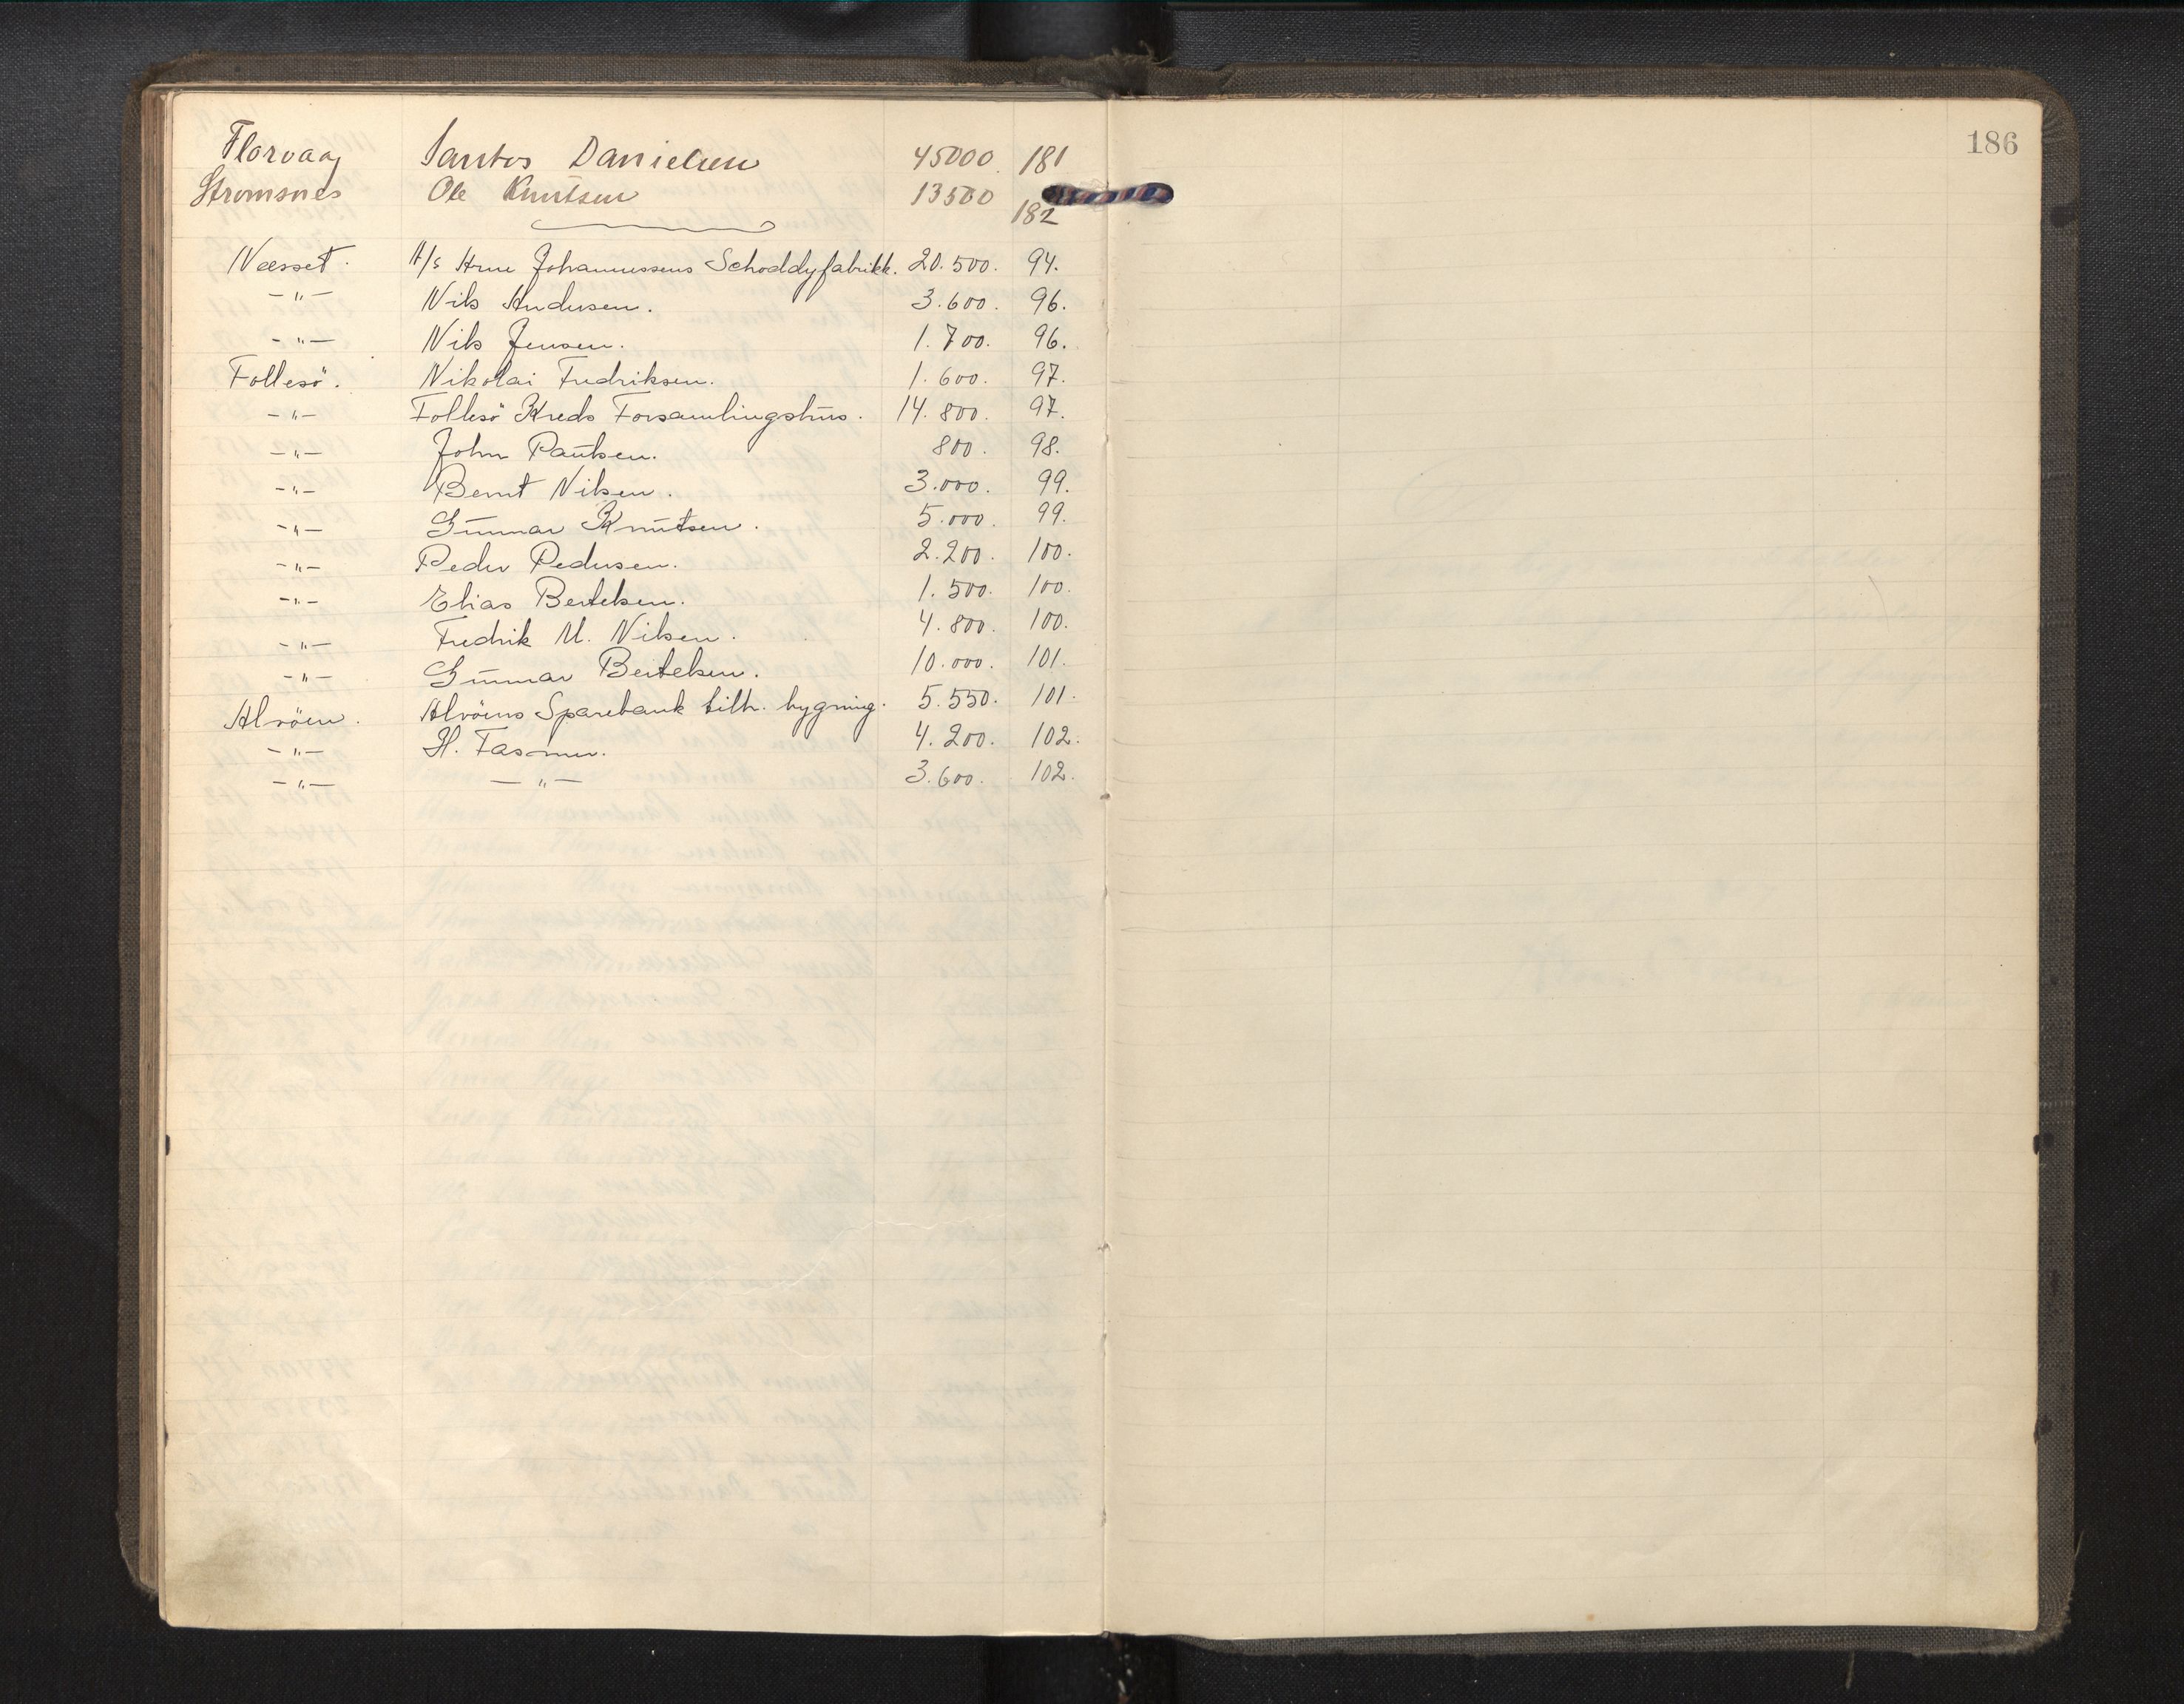 186
Florvaag Santos Danielsen 45000. 181
Stromsnes Ole Knutsen 13500 182
Næsset. A/s Arne Johannessens Schoddyfabrikk. 20.500. 94.
—"— Nils Andersen. 3.600. 96.
—"— Nils Jensen. 1.700. 96.
Follesö. Nikolai Fredriksen. 1.600. 97.
—"— Follesö Kreds Forsamlingshus. 14.800. 97.
—"— John Paulsen. 800. 98.
—"— Bernt Nilsen. 3.000. 99.
—"— Gunnar Knutsen. 5.000. 99.
—"— Peder Pedersen. 2.200. 100.
—"— Elias Bertelsen. 1.500. 100.
—"— Fredrik M. Nilsen. 4.800. 100.
—"— Gunnar Bertelsen. 10.000. 101.
Alvöen. Alvöens Sparebank tilh. bygning. 5.550. 101.
—"— H. Fasmer. 4.200. 102.
—"— —"— 3.600. 102.